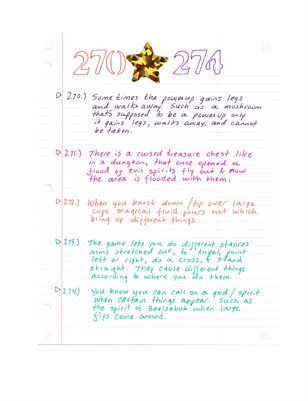 270 274
▷ 270.) Sometimes the powerup gains legs
and walks away. Such as a mushroom
thats supposed to be a powerup only
it gains legs, walks away, and cannot
be taken.
▷ 271.) There is a cursed treasure chest like
in a dungeon, that once opened a
flood of evil spirits fly out & now
the area is flooded with them.
▷ 272.) When you knock down/tip over large
cups magical fluid pours out which
bring up different things.
▷ 273.) The game lets you do different stances:
arms stretched out, to Angel, point
left or right, do a cross, & stand
straight. They cause different things
according to where you do them.
▷ 274.) You know you can call on a god/spirit
when certain things appear. Such as
the spirit of Beelzebub when large
flys come around.